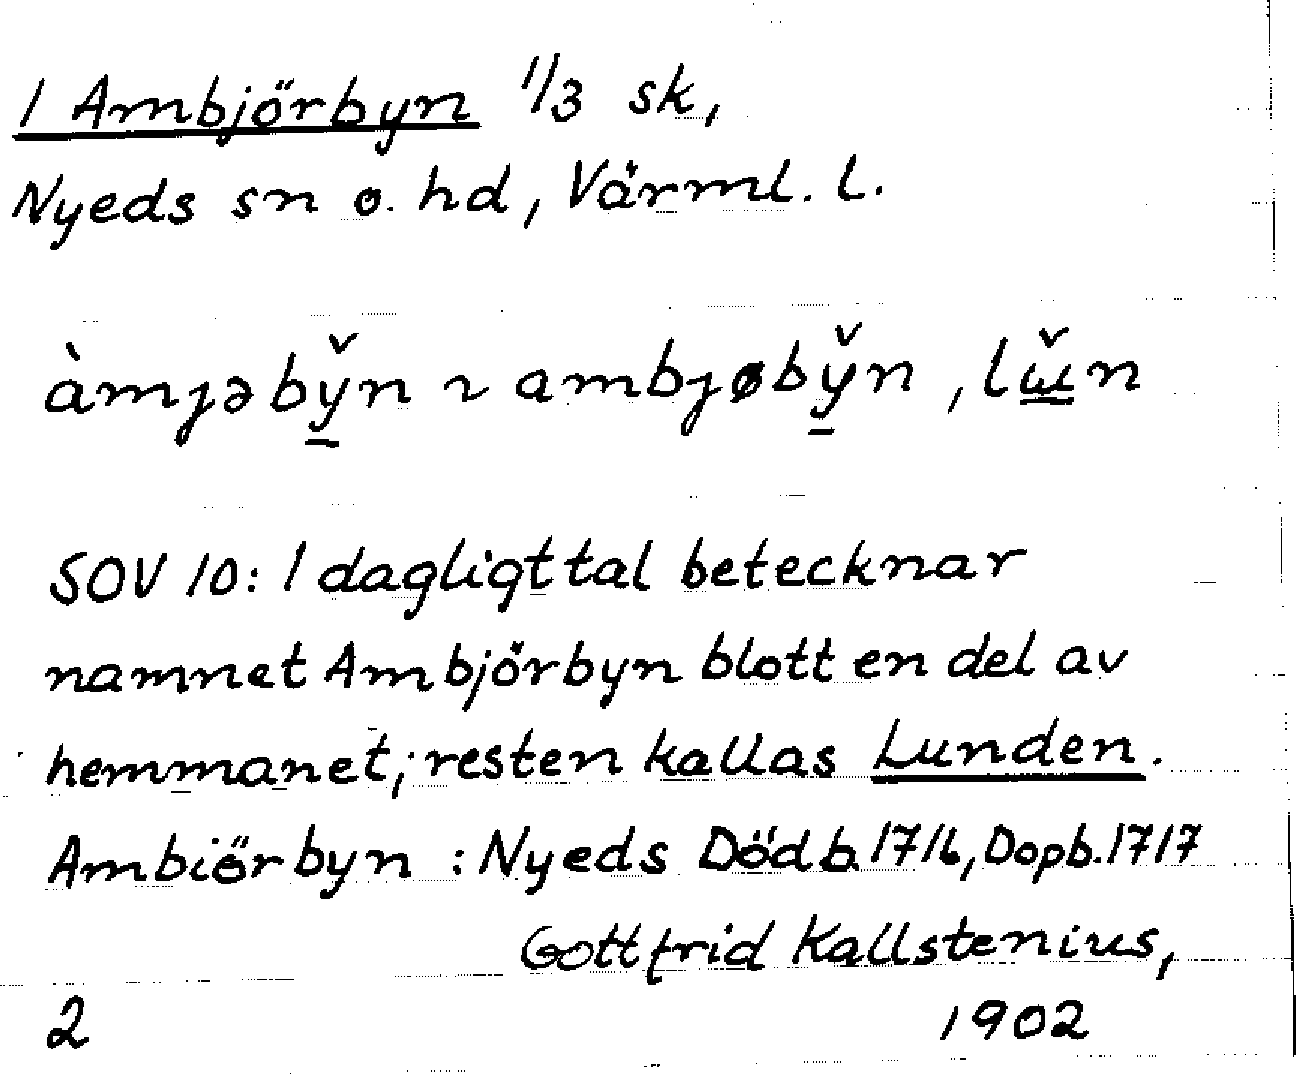 1 Ambjörbyn 1/3 sk,
Nyeds sn o. hd, Värml. l.
àmȷəby̌n ~ ambȷøby̌n, lɯ̌n
SOV 10: I dagligt tal betecknar
namnet Ambjörbyn blott en del av
hemmanet; resten kallas Lunden.
Ambiörbyn : Nyeds Dödb. 1716, Dopb. 1717
Gottfrid Kallstenius,
2 1902